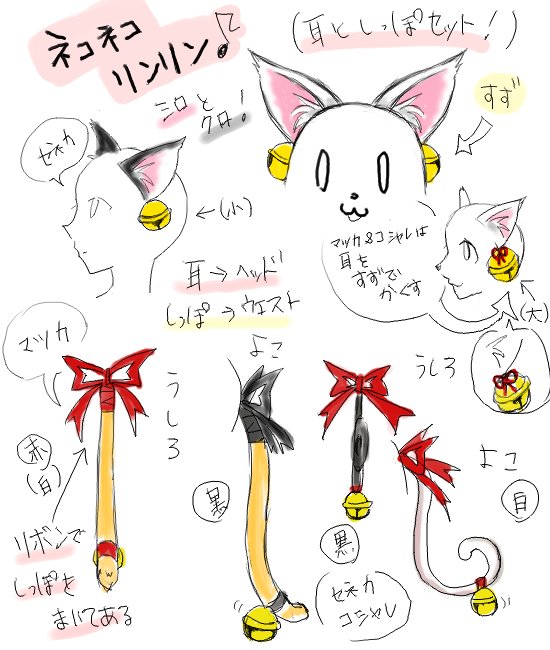 ネコネコ
リンリン♪
(耳としっぽセット!)
シロと
クロ!
すず
セネカ
←(小)
マツカ&コシャレは
耳を
すずで
かくす
(大)
耳→ヘッド
しっぽ→ウエスト
マツカ
うしろ
よこ
うしろ
よこ
赤
(白)
黒
黒
白
リボンで
しっぽを
まいてある
セネカ
コシャレ